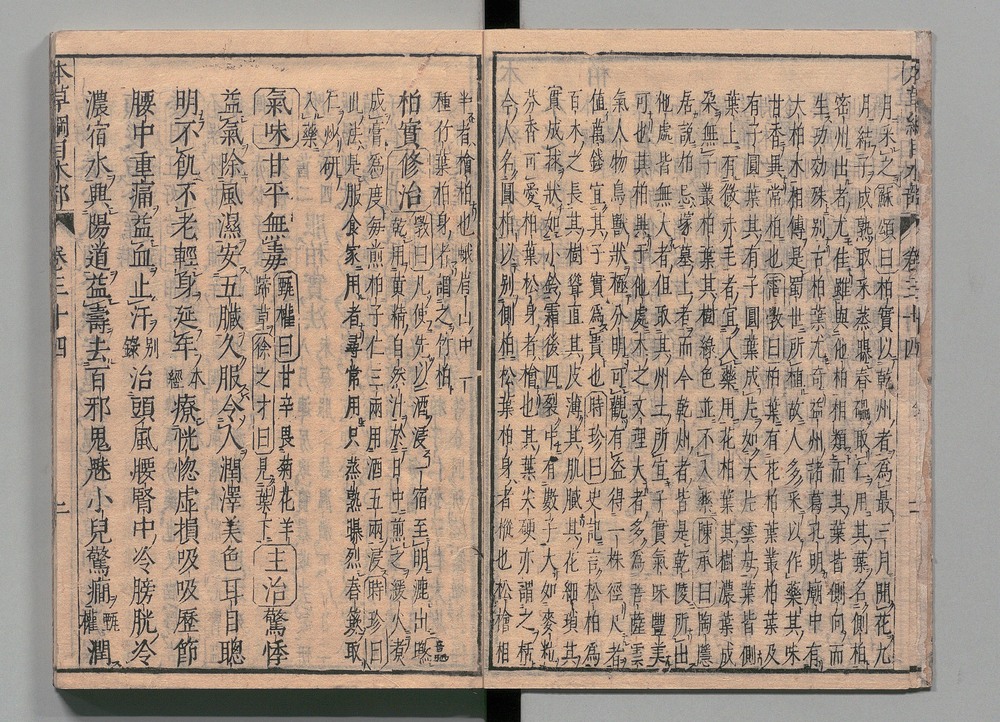 月采之蘇頌曰柏實以乾州者為最三月開花九
月結子成熟取采蒸曝舂𥽦取仁用其葉名側柏
密州出者尤佳雖與他柏相類而其葉皆側向而
生功効殊別古柏葉尤奇益州諸葛孔明廟中有
大柏木相傳是蜀世所植故人多采以作藥其味
甘香異常柏也雷斆曰柏葉有花柏葉叢柏葉及
有子圓葉其有子圓葉成片如大片雲母葉皆側
葉上有微赤毛者宜入藥用花柏葉其樹濃葉成
朶無子叢柏葉其樹綠色並不入藥陳承曰陶隱
居說柏忌塚墓上者而今乾州者皆是乾陵所出
他處皆無大者但取其州土所宜子實氣味豐美
可也其柏異于他處木之文理大者多為菩薩雲
氣人物鳥獸狀極分明可觀有盜得一株徑尺者
值萬錢宜其子實為貴也時珍曰史記言松柏為
百木之長其樹聳直其皮薄其肌膩其花細瑣其
實成捄狀如小鈴霜後四裂中有數子大如麥粒
芬香可愛柏葉松身者檜也其葉尖硬亦謂之栝
今人名圓柏以別側柏松葉柏身者樅也松檜相
半者檜柏也峨眉山中一
種竹葉柏身者謂之竹柏
柏實修治 斆曰凡使先以酒浸一宿至明漉出晒
乾用黃精自然汁於日中煎之緩火煮
成膏為度每煎柏子仁三兩用酒五兩浸時珍曰
此法是服食家用者尋常用只蒸熟曝烈舂簸取
仁炒研
入藥
氣味甘平無毒 甄權曰甘辛畏菊花羊
蹄草徐之才曰見葉下 主治驚悸
益氣除風濕安五臟久服令人潤澤美色耳目聰
明不飢不老輕身延年 本經 療恍惚虛損吸吸歷節
腰中重痛益血止汗 別錄 治頭風腰腎中冷膀胱冷
濃宿水興陽道益壽去百邪鬼魅小兒驚癇 甄權 潤
本草綱目木部 卷三十四 二